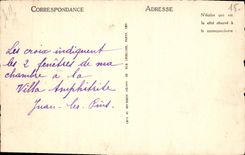 CORRESPONDANCE
ADRESSE
N'écrire que sur
le côté réservé à
la correspondance
15
Les croix indiquent
les 2 fenêtres de ma
chambre à la
Villa Amphitrite
Juan-les-Pins.